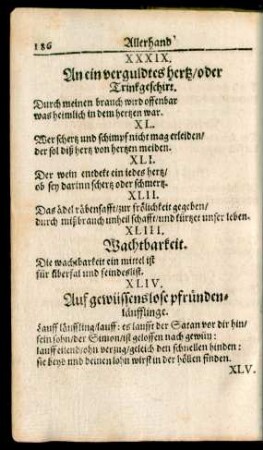 186 Allerhand
XXXIX.
An ein verguldtes hertz/oder
Trinkgeschirr.
Durch meinen brauch wird offenbar
was heimlich in dem hertzen war.
XL.
Wer schertz und schimpf nicht mag erleiden/
der sol diß hertz von hertzen meiden.
XLI.
Der wein entdekt ein iedes hertz/
ob sey darinn schertz oder schmertz.
XLII.
Das ädel räbensafft/zur frölichkeit gegeben/
durch mißbrauch unheil schafft/und kürtzet unser leben.
XLIII.
Wachtbarkeit.
Die wachtbarkeit ein mittel ist
für überfal und feindeslist.
XLIV.
Auf gewüssenslose pfründen-
läufflinge.
Lauff läuffling/lauff: es laufft der Satan vor dir hin/
sein sohn/der Simon/ist geloffen nach gewün:
lauff eilend/ohn verzug/geleich den schnellen hinden:
sie beyd und deinen lohn wirst in der höllen finden.
XLV.